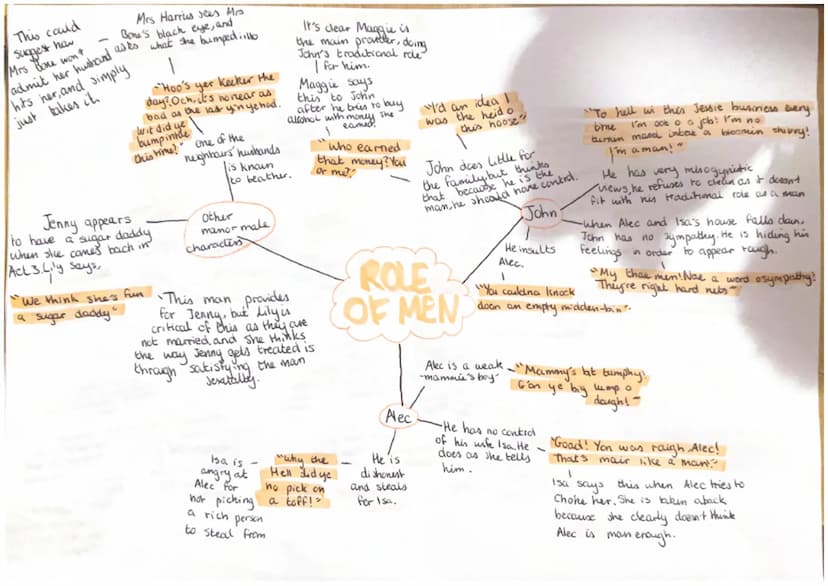 This could
suggest how
Mrs Bone won't
admit her husband
hits her, and simply
just takes it
Mrs Harris sees Mrs
Bone's black eye, and
asks what she bumped into
"Hoo's yer keeker the
day? Och, it's no near as
bad as the last yin ye had.
Wit did ye
bump intae
this time?"
one of the
neighbours' husbands
is known
to beat her.
Other
minor male
characters
Jenny appears
to have a sugar daddy
when she comes back in
Act 3. Lily says,
"We think she's fun
a sugar daddy"
This man provides
for Jenny, but Lily is
critical of this as they are
not married, and she thinks
the way Jenny gets treated is
through satisfying the man
sexually.
It's clear Maggie is
the main provider, doing
John's traditional role
for him.
Maggie says
this to John
after he tries to buy
alcohol with money she
earned.
"Who earned
that money? You
or me?"
"I'd an idea I
was the heid o
this hoose"
John does little for
the family, but thinks
that because he is the
man, he should have control.
John
"To hell wi this Jessie business every
time I'm oot o a job! I'm no
turnin masel intae a bloomin skivvy!
I'm a man!"
He has very misogynistic
views, he refuses to clean as it doesn't
fit with his traditional role as a man
When Alec and Isa's house falls down,
John has no sympathy. He is hiding his
feelings in order to appear tough.
"My thae men! Nae a word o sympathy!
They're right hard nuts"
He insults
Alec.
"You couldna knock
doon an empty midden-bin"
ROLE
OF MEN
Alec
Alec is a weak
"mammie's boy"
"Mammy's bit bumphy!
G'on ye big lump o
daugh!"
He has no control
of his wife Isa. He
does as she tells
him.
"Goad! Yon was rough, Alec!
That's mair like a man"
Isa says this when Alec tries to
choke her. She is taken aback
because she clearly doesn't think
Alec is man enough.
He is
dishonest
and steals
for Isa.
"Why the
Hell did ye
no pick on
a toff!"
Isa is
angry at
Alec for
not picking
a rich person
to steal from